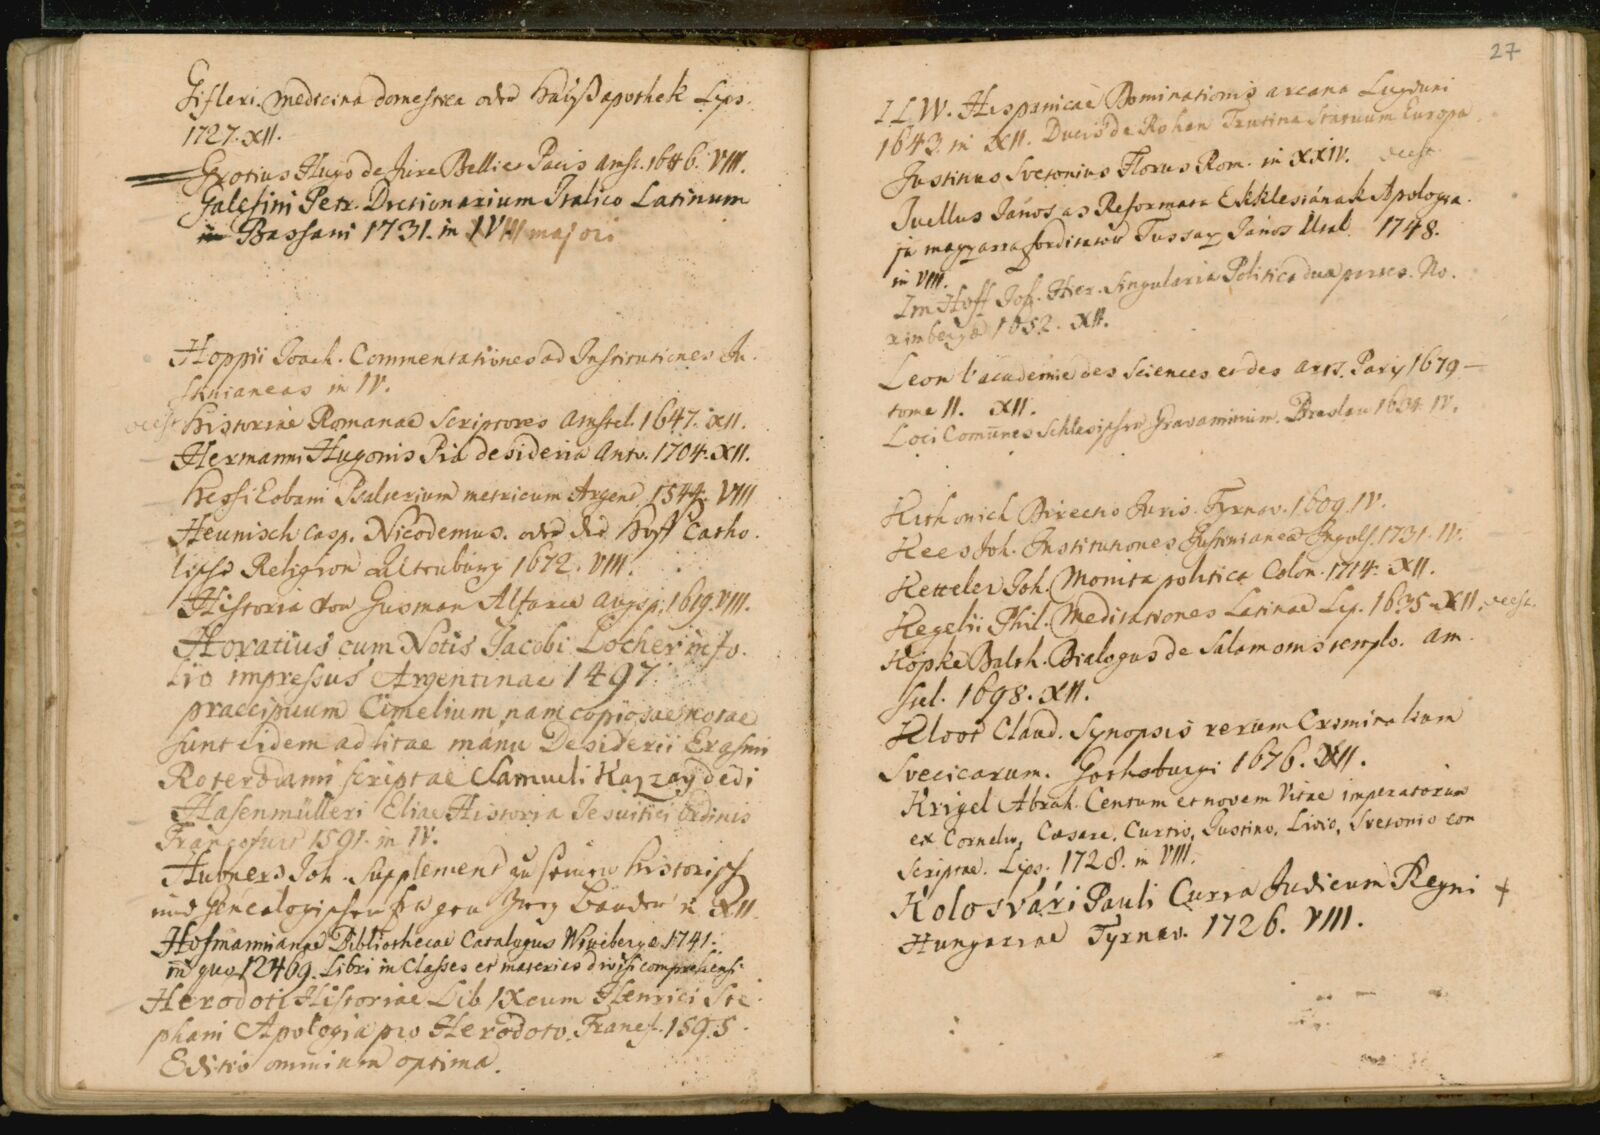 Gisleri. Medicina domestica oder Haußapothek Lips.
1727. XII.
Grotius Hugo de Jure Belli et Pacis Amst. 1646. VIII.
Galesini Petr. Dictionarium Italico Latinum
Bassani 1731. in VIII majori
Hoppii Joach. Commentationes ad Institutiones Ju-
stinianeas in IV.
deest Historiae Romanae Scriptores Amstel. 1647. XII.
Hermanni Hugonis Pia desideria Antv. 1704. XII.
Hessi Eobani Psalterium metricum Argend. 1544. VIII
Heunisch Casp. Nicodemus. oder der Catho-
lische Religion Altenburg 1672. VIII.
Historia von Gusman Alfarce Augsp. 1619. VIII.
Horatius cum Notis Jacobi Locher in fo-
lio impressus Argentinae 1497.
praecipuum Cimelium nam copiosae notae
sunt eidem additae manu Desiderii Erasmi
Roterdami scriptae Samueli Kazzay dedi
Hasenmülleri Eliae Historia Jesuitici Ordinis
Francofurt 1591. in IV.
Hubners Joh. Supplement zu seinen Historisch
und Genealogischen fragen Bänder in XII.
Hofmannianae Bibliothecae Catalogus 1741.
in quo 12469. Libri in Classes et materies divisi comprehensi
Herodoti Historiae Lib. IX cum Henrici Ste-
phani Apologia pro Herodoto. Francf. 1595.
Editio omnium optima.
27
I L W. Hispanicae Dominationis arcana Lugduni
1643. in XII. Ducis de Rohan Trutina Statuum Europa
Justinus Svetonius Florus Rom. in XXIV. deest
Juellus János as Reformata Ekklesiának Apologia-
ja magyarra forditatou Tussay János Utal. 1748.
in VIII.
Im Hoff Jos. Hier. Singularia Politica duae partes. No-
rimbergae 1652. XII.
Leon l'academie des Sciences et des arts. Pary 1679 —
tome II. XII.
Loci Comunes Schlesischer Gravaminum. Breslau 1634. IV.
Kithonich Directio Juris. Tyrnav. 1609. IV.
Kees Joh. Institutiones Justinianea Ingolf. 1731. IV.
Ketteler Joh. Monita politica Colon. 1714. XII.
Kegelii Phil. Meditationes Latinae Lip. 1635. XII. deest.
Köpke Balth. Dialogus de Salamonis templo. Am-
stel. 1698. XII.
Kloot Claud. Synopsis rerum Criminalium
Svecicarum. Gothoburgi 1676. XII.
Krigel Abrah. Centum et novem Vitae imperatorum
ex Cornelio, Caesare, Curtio, Justino, Livio, Svetonio con-
scriptae. Lips. 1728. in VIII.
Kolosvári Pauli Curia Judicum Regni +
Hungariae Tyrnav. 1726. VIII.